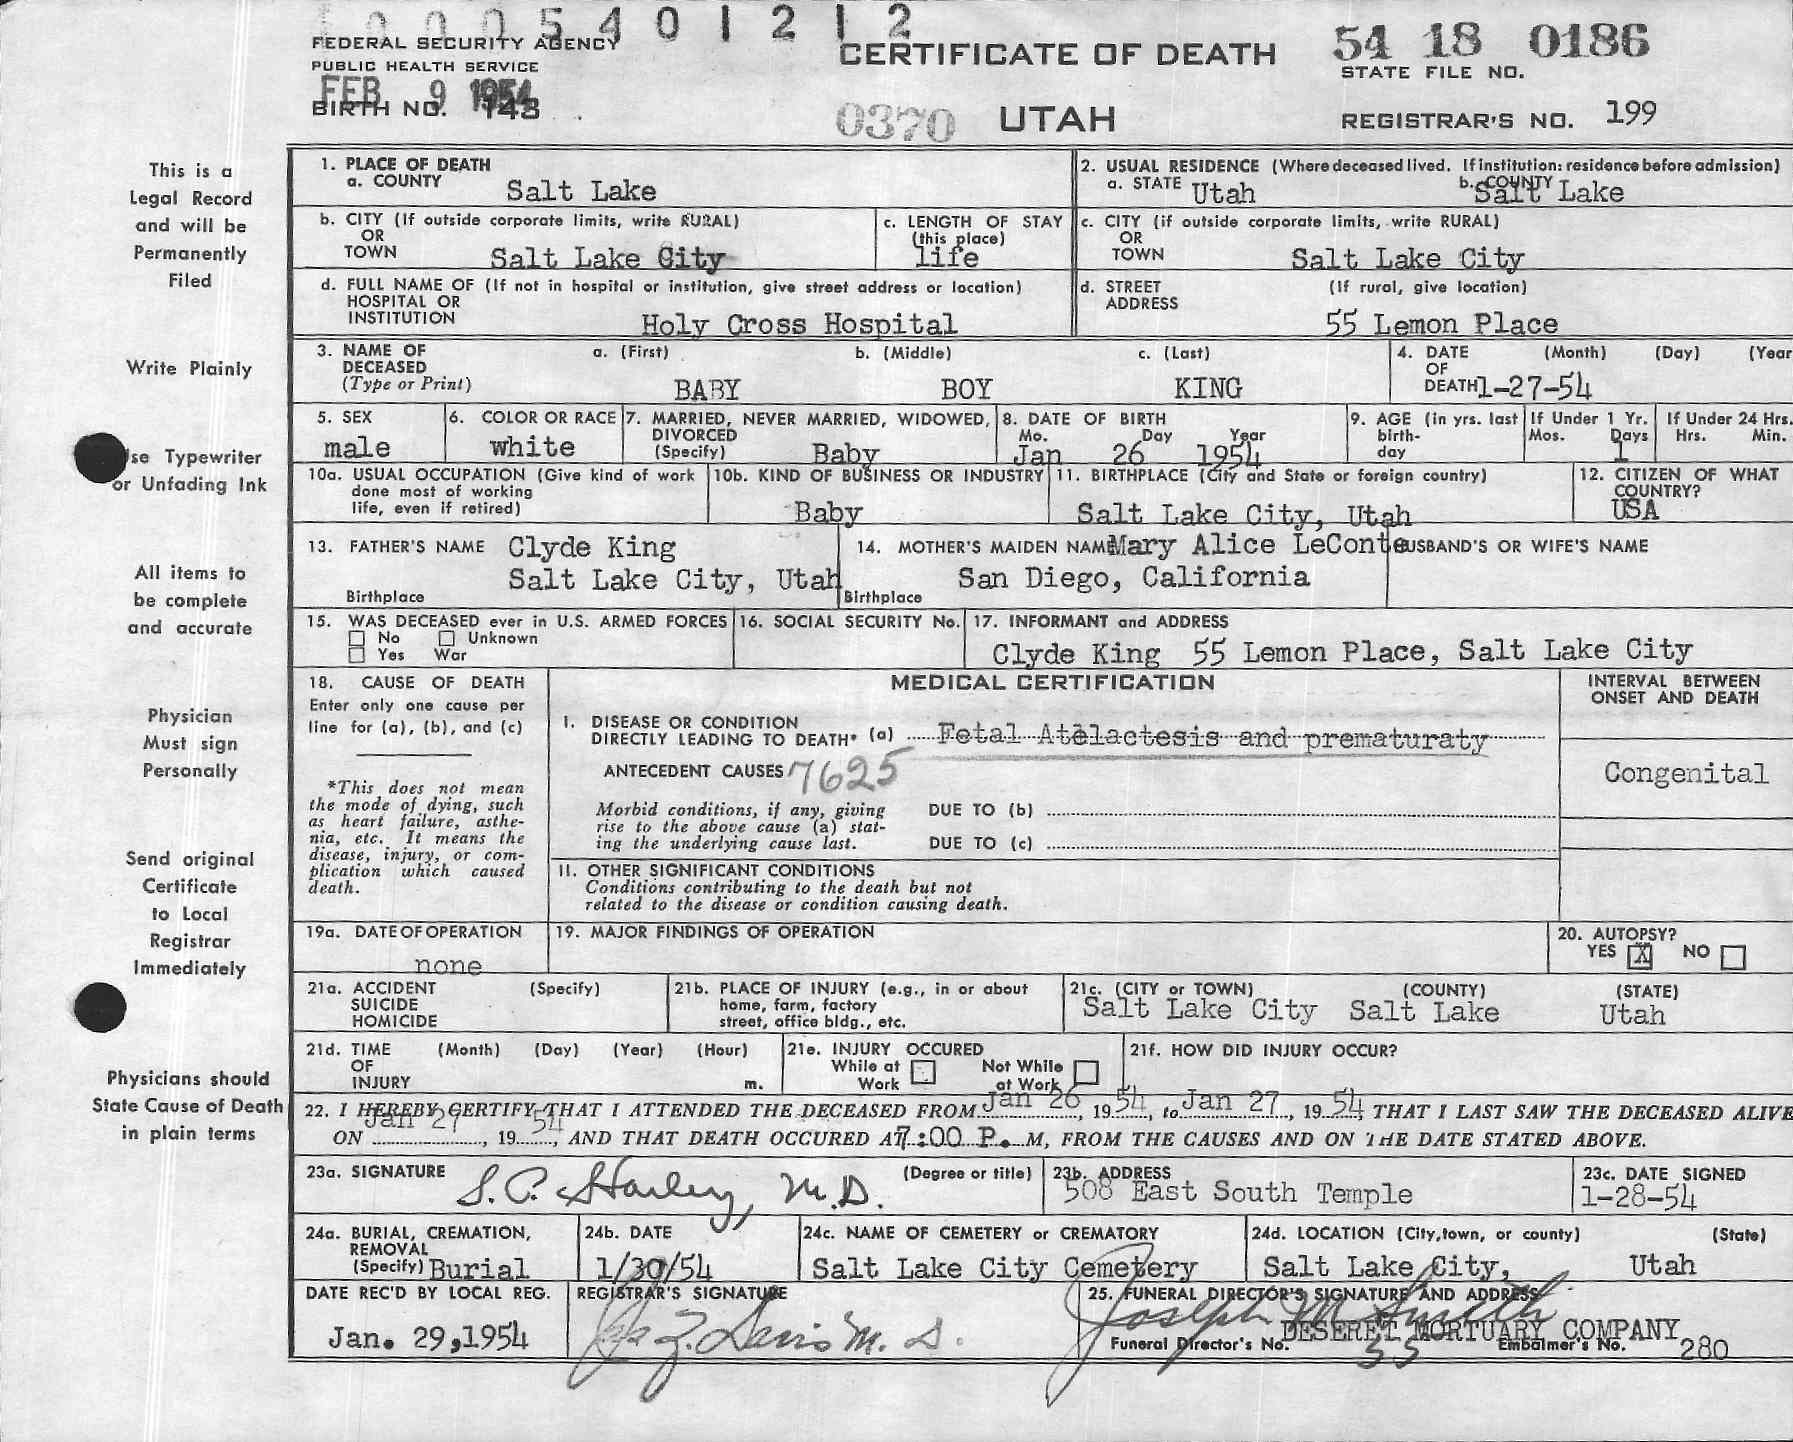 1 0 0 0 5 4 0 1 2 1 2
FEDERAL SECURITY AGENCY
PUBLIC HEALTH SERVICE
FEB 9 1954
BIRTH NO. 143
CERTIFICATE OF DEATH
0370 UTAH
54 18 0186
STATE FILE NO.
REGISTRAR'S NO. 199
This is a
Legal Record
and will be
Permanently
Filed
Write Plainly
Use Typewriter
or Unfading Ink
All items to
be complete
and accurate
Physician
Must sign
Personally
Send original
Certificate
to Local
Registrar
Immediately
Physicians should
State Cause of Death
in plain terms
1. PLACE OF DEATH
a. COUNTY Salt Lake
2. USUAL RESIDENCE (Where deceased lived. If institution: residence before admission)
a. STATE Utah b. COUNTY Salt Lake
b. CITY (If outside corporate limits, write RURAL)
OR
TOWN Salt Lake City
c. LENGTH OF STAY
(this place)
life
c. CITY (if outside corporate limits, write RURAL)
OR
TOWN Salt Lake City
d. FULL NAME OF (If not in hospital or institution, give street address or location)
HOSPITAL OR
INSTITUTION Holy Cross Hospital
d. STREET (If rural, give location)
ADDRESS
55 Lemon Place
3. NAME OF DECEASED
(Type or Print)
a. (First) b. (Middle) c. (Last)
BABY BOY KING
4. DATE (Month) (Day) (Year
OF
DEATH 1-27-54
5. SEX
male
6. COLOR OR RACE
white
7. MARRIED, NEVER MARRIED, WIDOWED,
DIVORCED
(Specify) Baby
8. DATE OF BIRTH
Mo. Day Year
Jan 26 1954
9. AGE (in yrs. last
birth-
day
If Under 1 Yr.
Mos. Days
1
If Under 24 Hrs.
Hrs. Min.
10a. USUAL OCCUPATION (Give kind of work
done most of working
life, even if retired)
10b. KIND OF BUSINESS OR INDUSTRY
Baby
11. BIRTHPLACE (City and State or foreign country)
Salt Lake City, Utah
12. CITIZEN OF WHAT
COUNTRY?
USA
13. FATHER'S NAME Clyde King
Salt Lake City, Utah
Birthplace
14. MOTHER'S MAIDEN NAME Mary Alice LeConte
San Diego, California
Birthplace
HUSBAND'S OR WIFE'S NAME
15. WAS DECEASED ever in U.S. ARMED FORCES
No Unknown
Yes War
16. SOCIAL SECURITY No.
17. INFORMANT and ADDRESS
Clyde King 55 Lemon Place, Salt Lake City
18. CAUSE OF DEATH
Enter only one cause per
line for (a), (b), and (c)
*This does not mean
the mode of dying, such
as heart failure, asthe-
nia, etc. It means the
disease, injury, or com-
plication which caused
death.
MEDICAL CERTIFICATION
I. DISEASE OR CONDITION
DIRECTLY LEADING TO DEATH* (a) Fetal Atelactesis and prematuraty
ANTECEDENT CAUSES 7625
Morbid conditions, if any, giving
rise to the above cause (a) stat-
ing the underlying cause last.
DUE TO (b)
DUE TO (c)
II. OTHER SIGNIFICANT CONDITIONS
Conditions contributing to the death but not
related to the disease or condition causing death.
INTERVAL BETWEEN
ONSET AND DEATH
Congenital
19a. DATE OF OPERATION
none
19. MAJOR FINDINGS OF OPERATION
20. AUTOPSY?
YES X NO
21a. ACCIDENT (Specify)
SUICIDE
HOMICIDE
21b. PLACE OF INJURY (e.g., in or about
home, farm, factory
street, office bldg., etc.
21c. (CITY or TOWN) (COUNTY) (STATE)
Salt Lake City Salt Lake Utah
21d. TIME (Month) (Day) (Year) (Hour)
OF
INJURY m.
21e. INJURY OCCURED
While at Work
Not While at Work
21f. HOW DID INJURY OCCUR?
22. I HEREBY CERTIFY THAT I ATTENDED THE DECEASED FROM Jan 26, 1954, to Jan 27, 1954 THAT I LAST SAW THE DECEASED ALIVE
ON Jan 27, 1954, AND THAT DEATH OCCURED AT 7:00 P.M, FROM THE CAUSES AND ON THE DATE STATED ABOVE.
23a. SIGNATURE (Degree or title)
M.D.
23b. ADDRESS
508 East South Temple
23c. DATE SIGNED
1-28-54
24a. BURIAL, CREMATION,
REMOVAL
(Specify) Burial
24b. DATE
1/30/54
24c. NAME OF CEMETERY or CREMATORY
Salt Lake City Cemetery
24d. LOCATION (City, town, or county) (State)
Salt Lake City, Utah
DATE REC'D BY LOCAL REG.
Jan. 29,1954
REGISTRAR'S SIGNATURE
Davis M. D.
25. FUNERAL DIRECTOR'S SIGNATURE AND ADDRESS
Joseph M Smith
DESERET MORTUARY COMPANY
Funeral Director's No. 55 Embalmer's No. 280